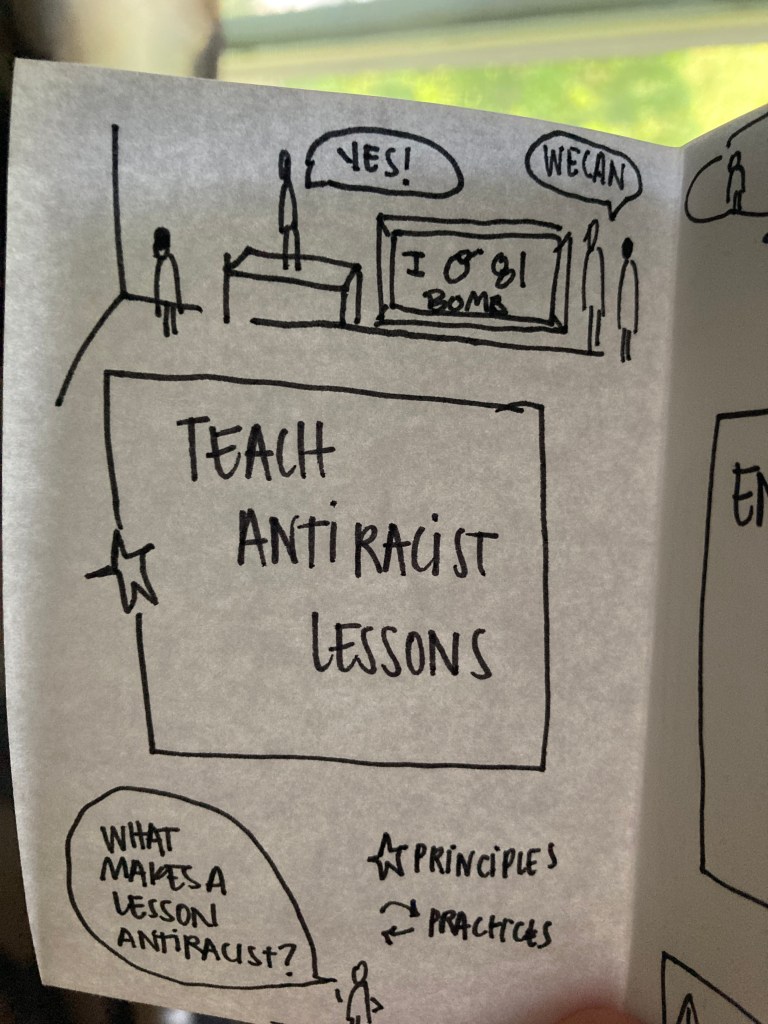 YES!
WE CAN
BOMB
TEACH
ANTIRACIST
LESSONS
WHAT
MAKES A
LESSON
ANTIRACIST?
PRINCIPLES
PRACTICES